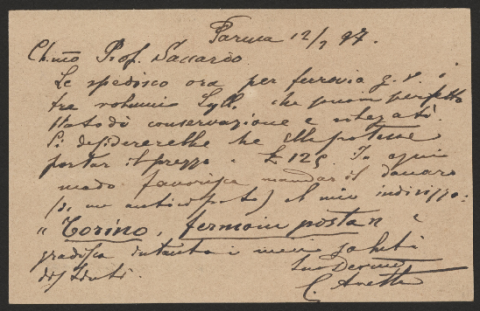 Parma 12/3 97.
Ch.mo Prof. Saccardo
Le spedisco ora per ferrovia g. v. i
tre volumi Syll. che sono in perfetto
stato di conservazione e
Si desidererebbe che Ella potesse
portar il prezzo a £ 125. In ogni
modo favorisca mandar il danaro
(di un anticipato) al mio indirizzo:
"Torino, fermo in posta" e
gradisca intanto i miei saluti
distinti.
Suo Devmo
C. Avetta